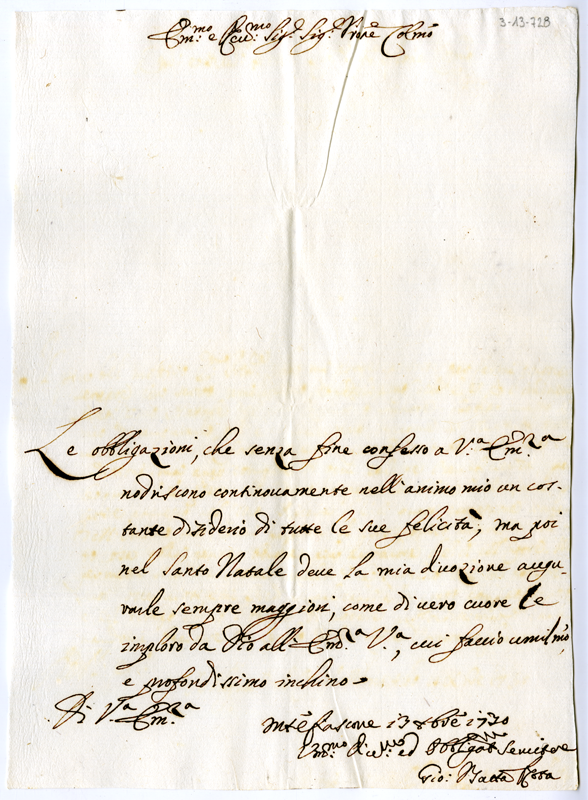 3-13-728
Em:mo e Rev:mo Sig.r Sig.r Prõne Colmõ
Le obbligazioni, che senza fine confesso a V.a Em.za
nodriscono continouamente nell'animo mio un cos-
tante disiderio di tutte le sue felicità; ma poi
nel Santo Natale deve la mia divozione augu-
rarle sempre maggiori, come di vero cuore le
imploro da Dio all'Em.a V.a, cui faccio umilmo,
e profondissimo inchino.
Di V.a Em.a
Mtefiascone 13 Xbre 1710
Um:mo Di:mo ed Obbligat Servitore
Gio: Batta